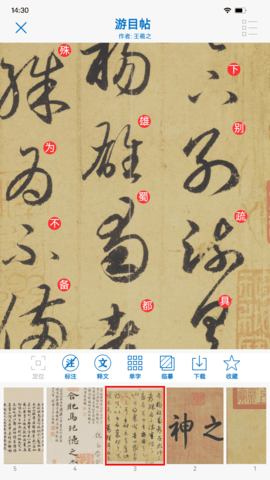 14:30
游目帖
作者: 王羲之
下
别
疏
具
雄
蜀
都
殊
为
不
备
定位 标注 释文 单字 临摹 下载 收藏
之
神
5 4 3 2 1